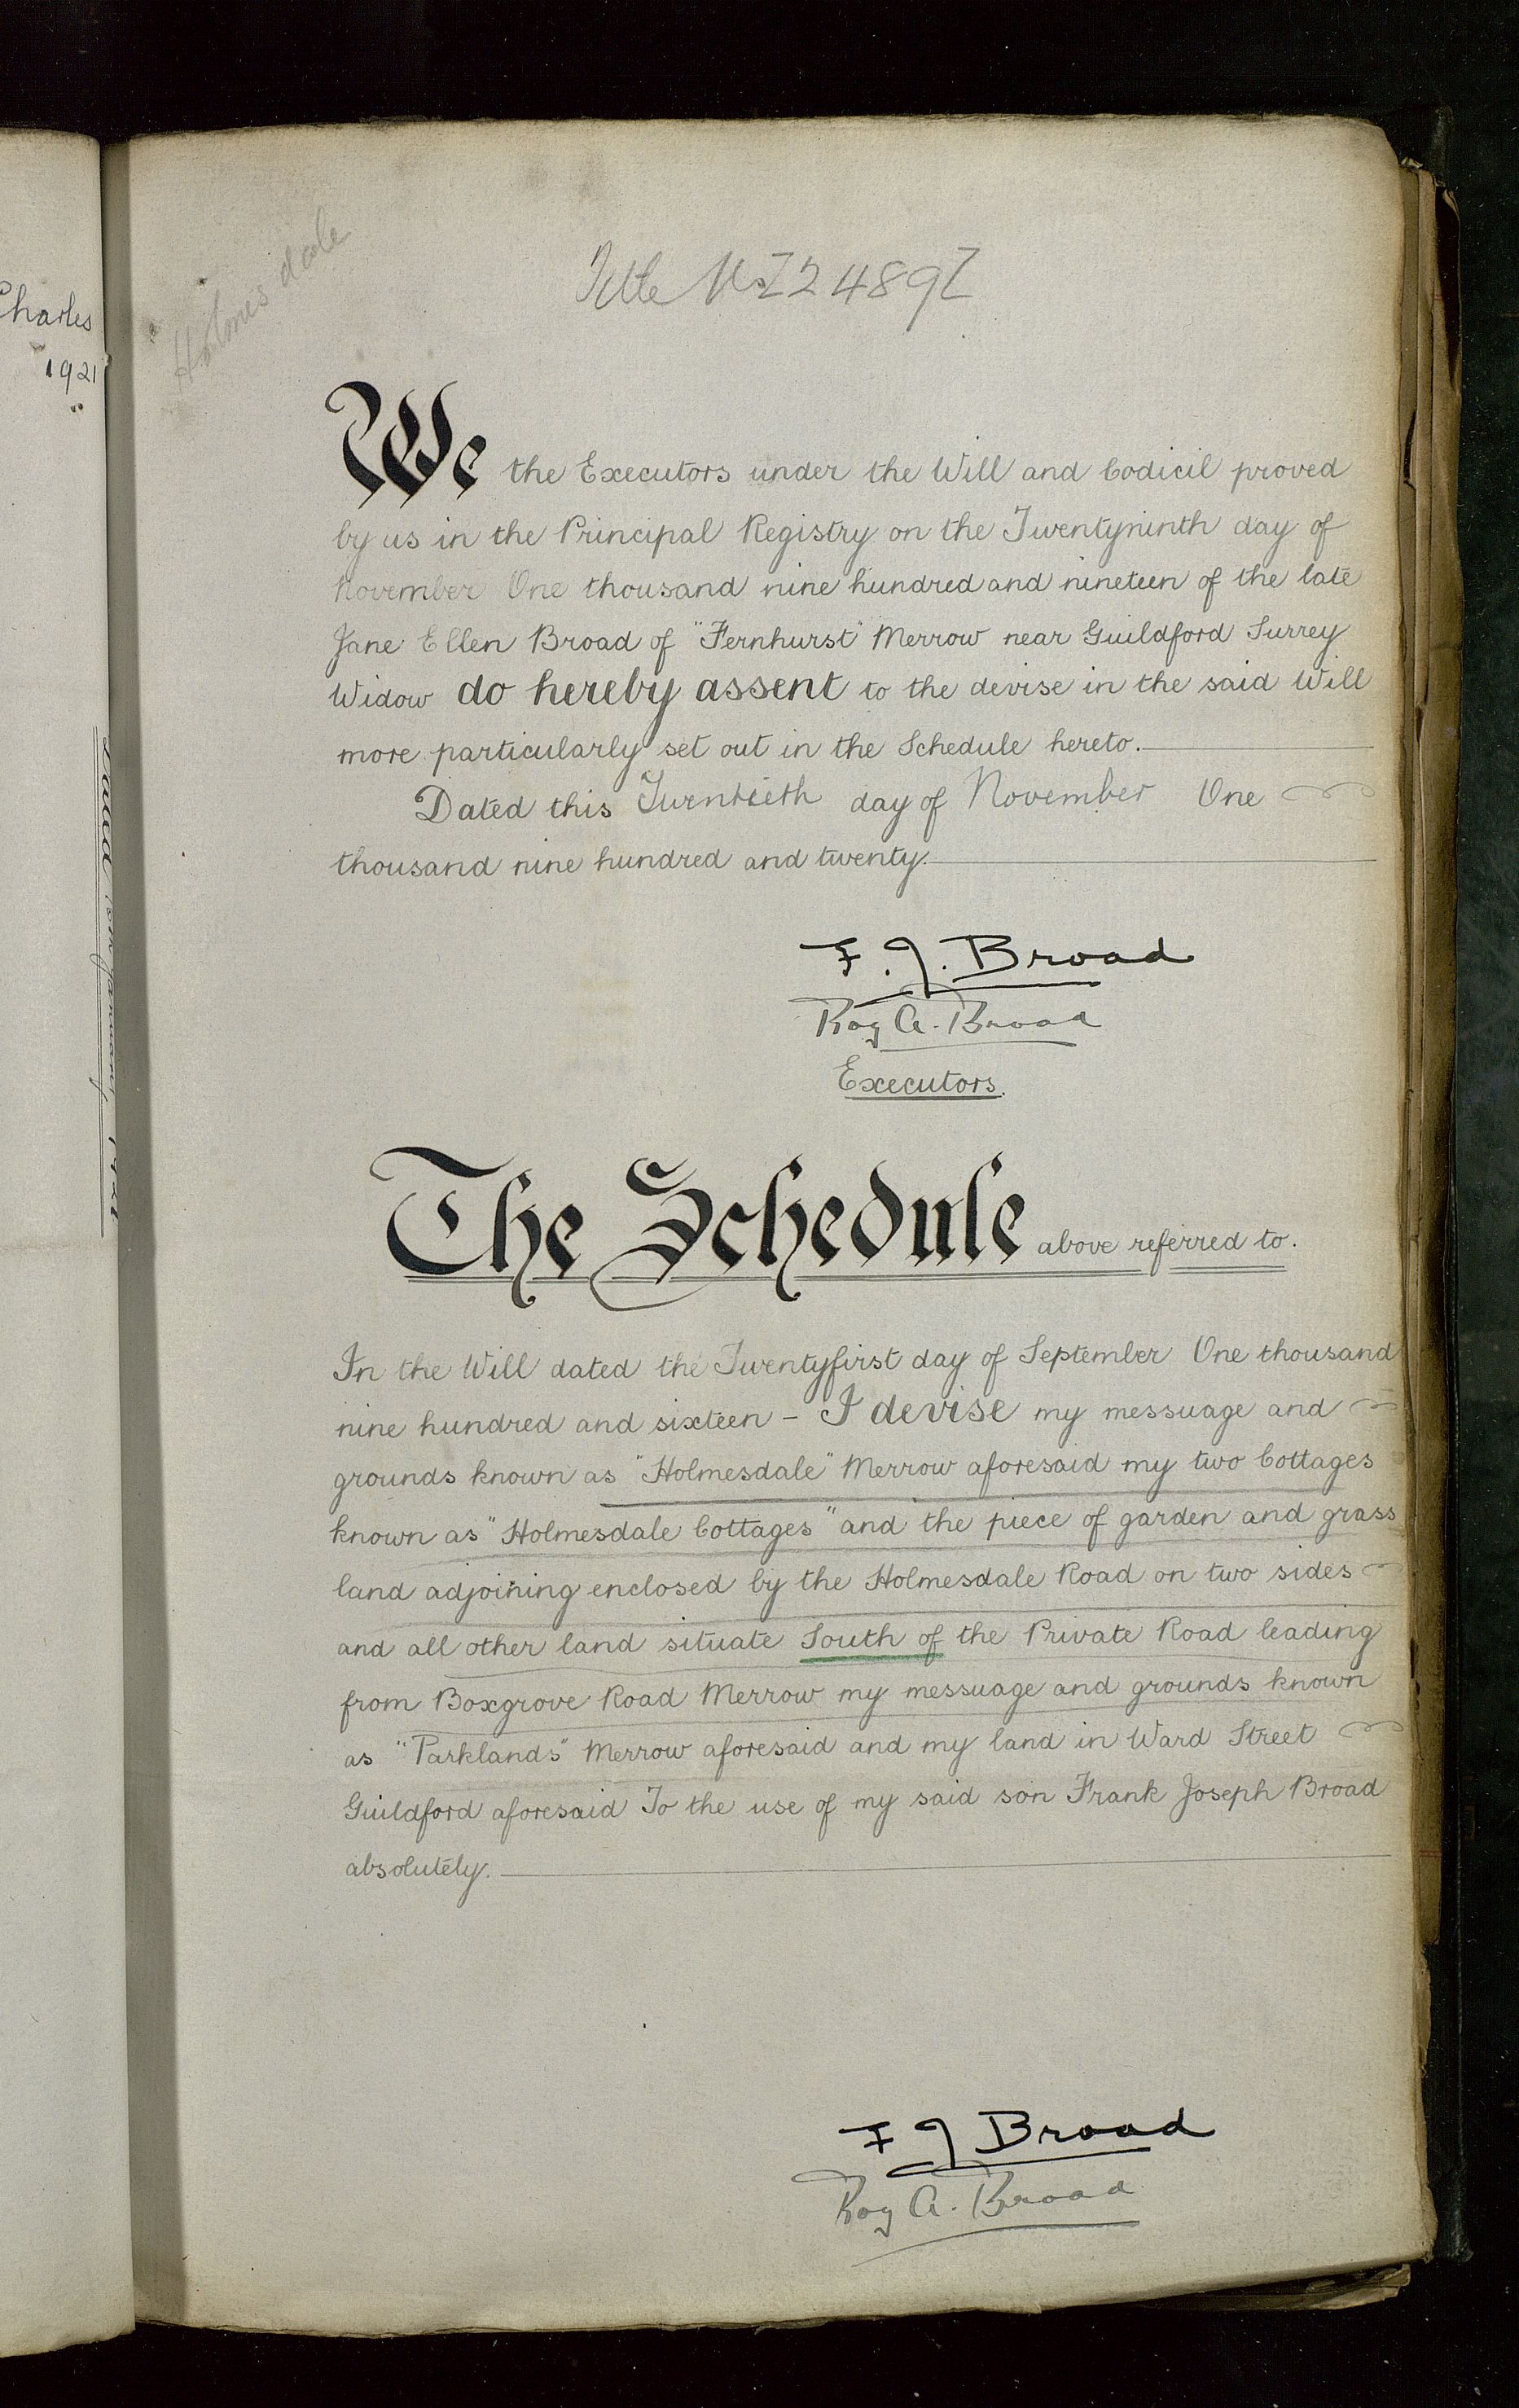 Charles
1921
Holmesdale
Title
We the Executors under the Will and Codicil proved
by us in the Principal Registry on the Twentyninth day of
November One thousand nine hundred and nineteen of the late
Jane Ellen Broad of "Fernhurst" Merrow near Guildford Surrey
Widow do hereby assent to the devise in the said Will
more particularly set out in the Schedule hereto.
Dated this Twentieth day of November One
thousand nine hundred and twenty.
F. J. Broad
Roy A. Broad
Executors.
The Schedule above referred to.
In the Will dated the Twentyfirst day of September One thousand
nine hundred and sixteen - I devise my messuage and
grounds known as "Holmesdale" Merrow aforesaid my two Cottages
known as "Holmesdale Cottages" and the piece of garden and grass
land adjoining enclosed by the Holmesdale Road on two sides
and all other land situate South of the Private Road leading
from Boxgrove Road Merrow my messuage and grounds known
as "Parklands" Merrow aforesaid and my land in Ward Street
Guildford aforesaid To the use of my said son Frank Joseph Broad
absolutely.
F J Broad
Roy A. Broad